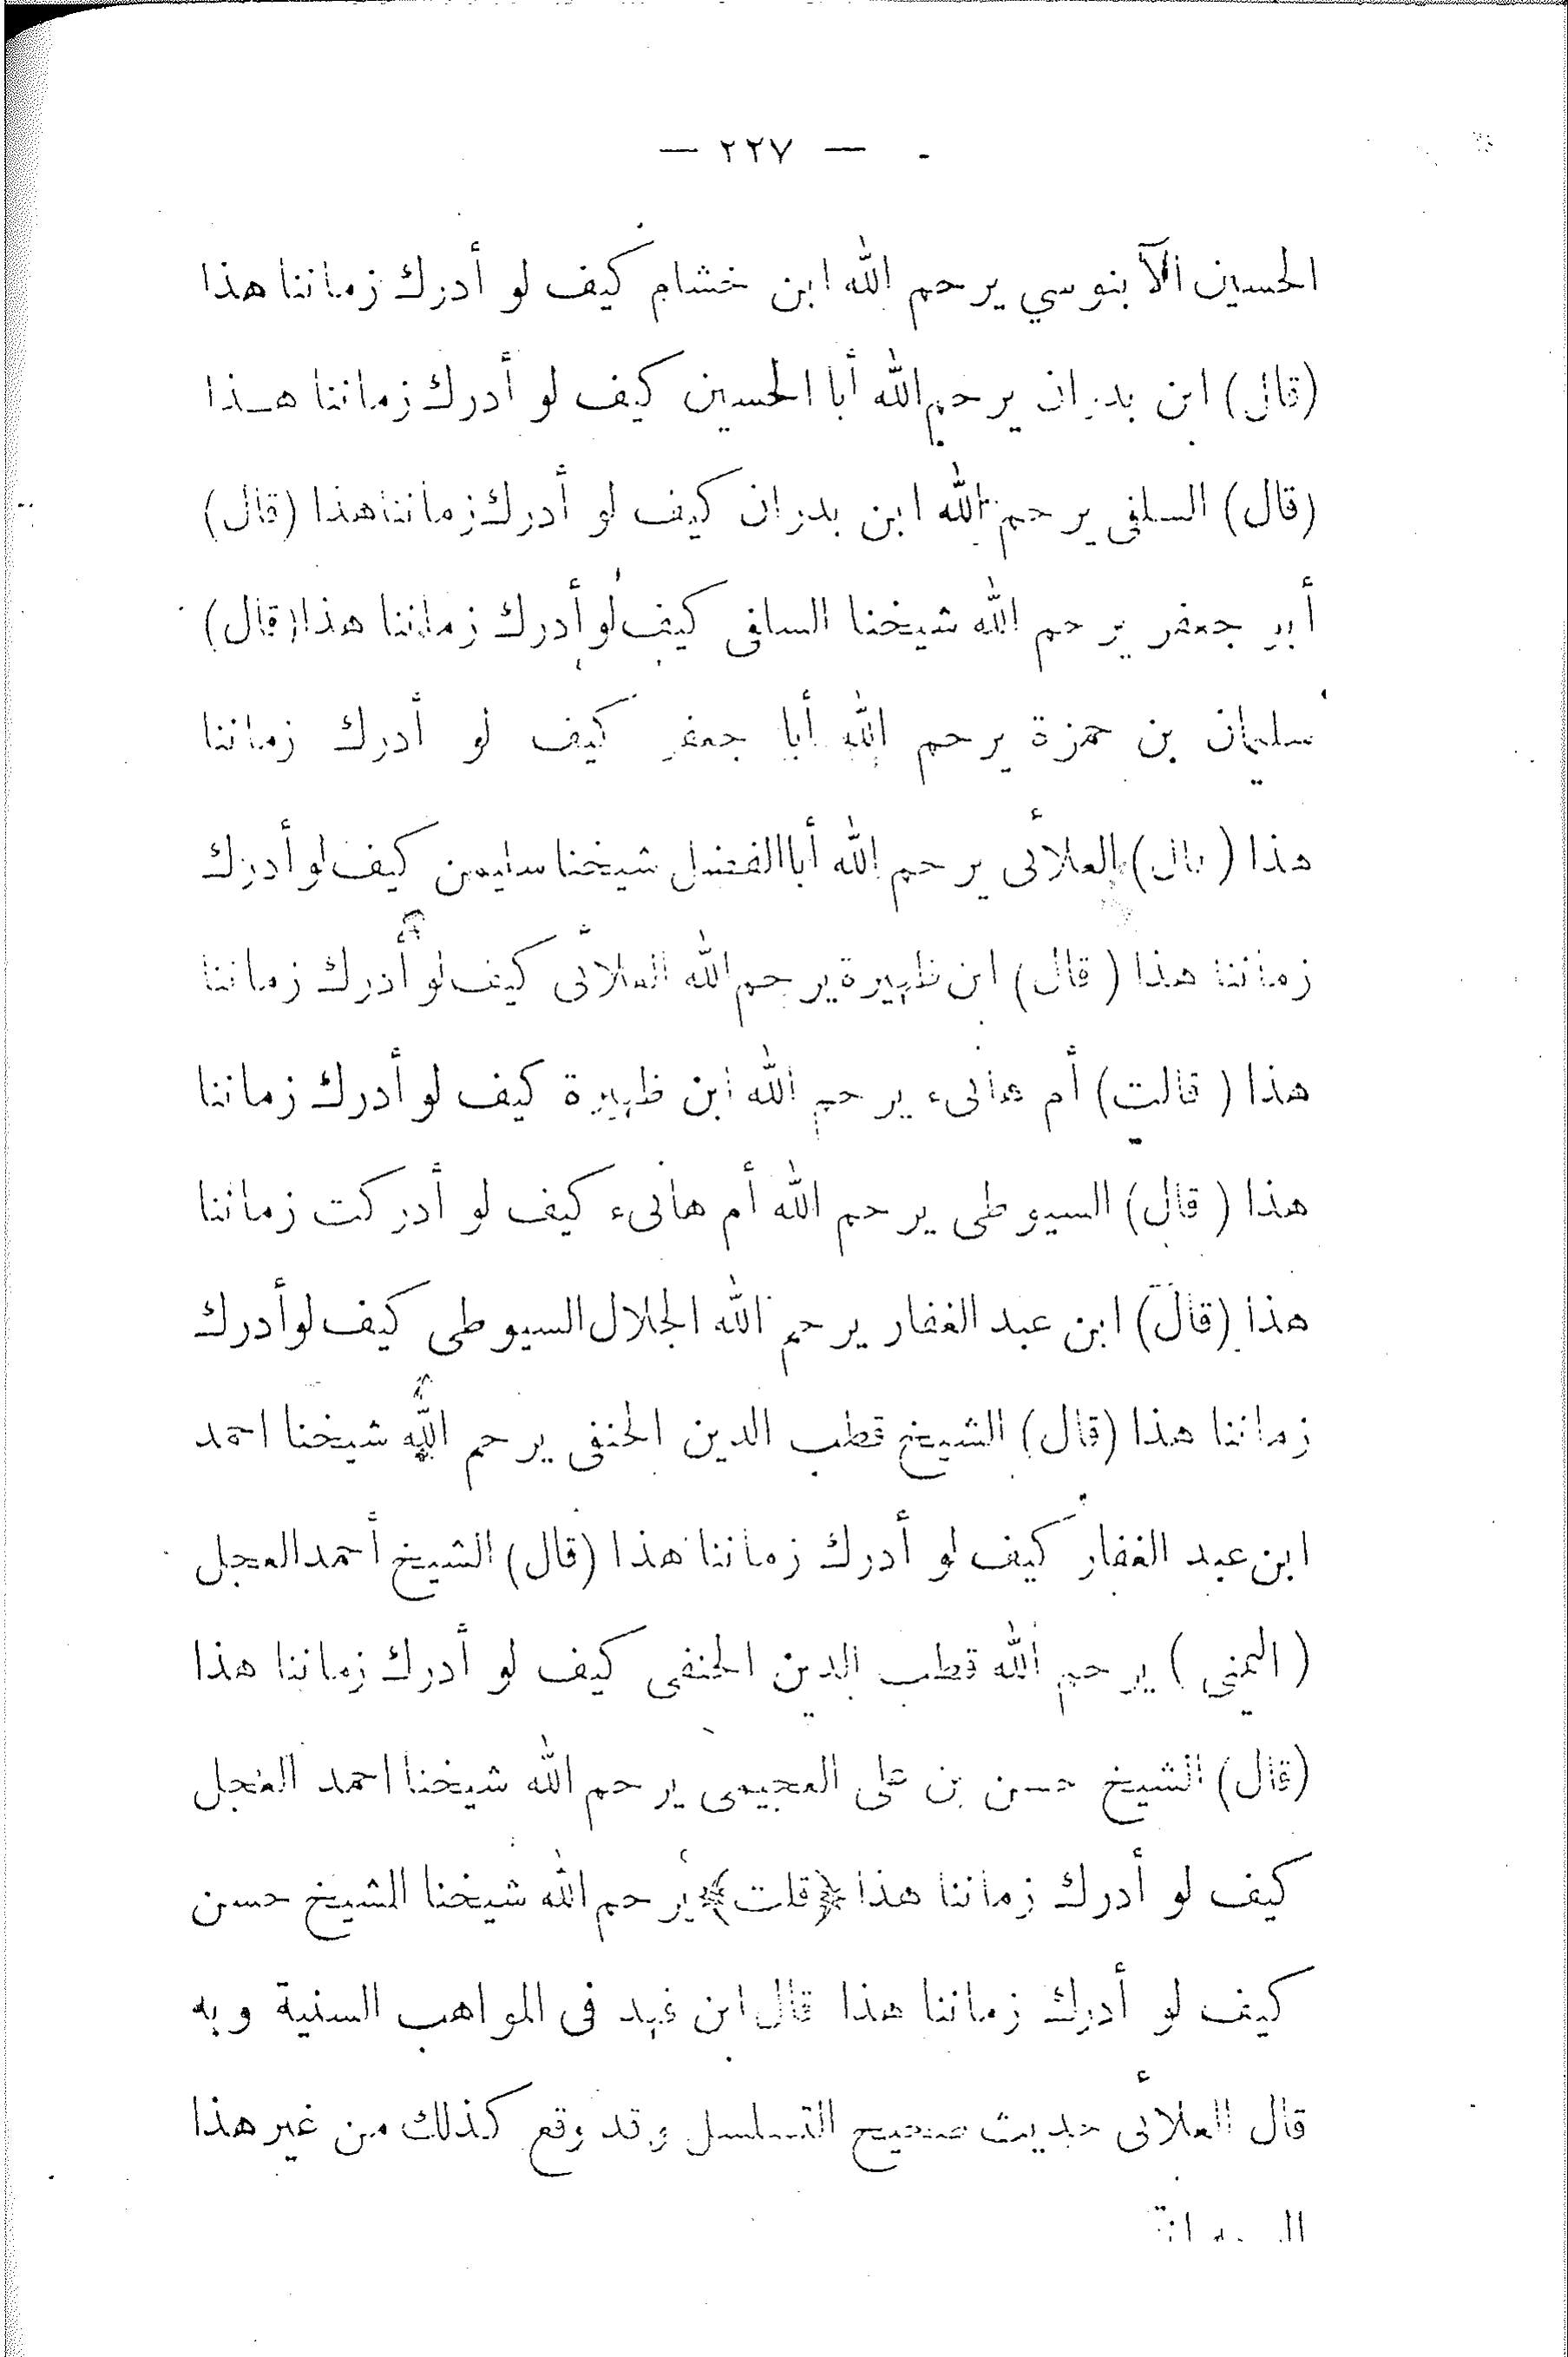 — ٢٢٧ —
الحسين الآبنوسي يرحم الله ابن خشام كيف لو أدرك زماننا هذا
(قال) ابن بدران يرحم الله أبا الحسين كيف لو أدرك زماننا هذا
(قال) السلفى يرحم الله ابن بدران كيف لو أدرك زماننا هذا (قال)
أبو جعفر يرحم الله شيخنا السلفى كيف لو أدرك زماننا هذا (قال)
سليمان بن حمزة يرحم الله أبا جعفر كيف لو أدرك زماننا
هذا (قال) العلائى يرحم الله أبا الفضل شيخنا سليمن كيف لو أدرك
زماننا هذا (قال) ابن ظهيرة يرحم الله العلائى كيف لو أدرك زماننا
هذا (قالت) أم هانىء يرحم الله ابن ظهيرة كيف لو أدرك زماننا
هذا (قال) السيوطى يرحم الله أم هانىء كيف لو أدركت زماننا
هذا (قال) ابن عبد الغفار يرحم الله الجلال السيوطى كيف لو أدرك
زماننا هذا (قال) الشيخ قطب الدين الحنفى يرحم الله شيخنا احمد
ابن عبد الغفار كيف لو أدرك زماننا هذا (قال) الشيخ أحمد العجل
(اليمنى) يرحم الله قطب الدين الحنفى كيف لو أدرك زماننا هذا
(قال) الشيخ حسن بن على العجيمى يرحم الله شيخنا احمد العجل
كيف لو أدرك زماننا هذا ﴿قلت﴾ يرحم الله شيخنا الشيخ حسن
كيف لو أدرك زماننا هذا قال ابن فهد فى المواهب السنية وبه
قال العلائى حديث صحيح التسلسل وقد وقع كذلك من غير هذا